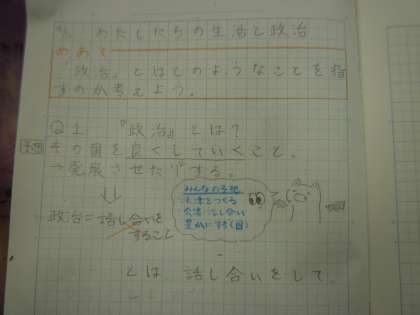 わたしたちの生活と政治
めあて
「政治」とはどのようなことを指
すのか考えよう。
Q1. 『政治』とは?
予想
その国を良くしていくこと。
→発展させたりする。
みんなの予想
法律をつくる
会議 話し合い
豊かにする(国)
政治=話し合いを
すること
とは 話し合いをして